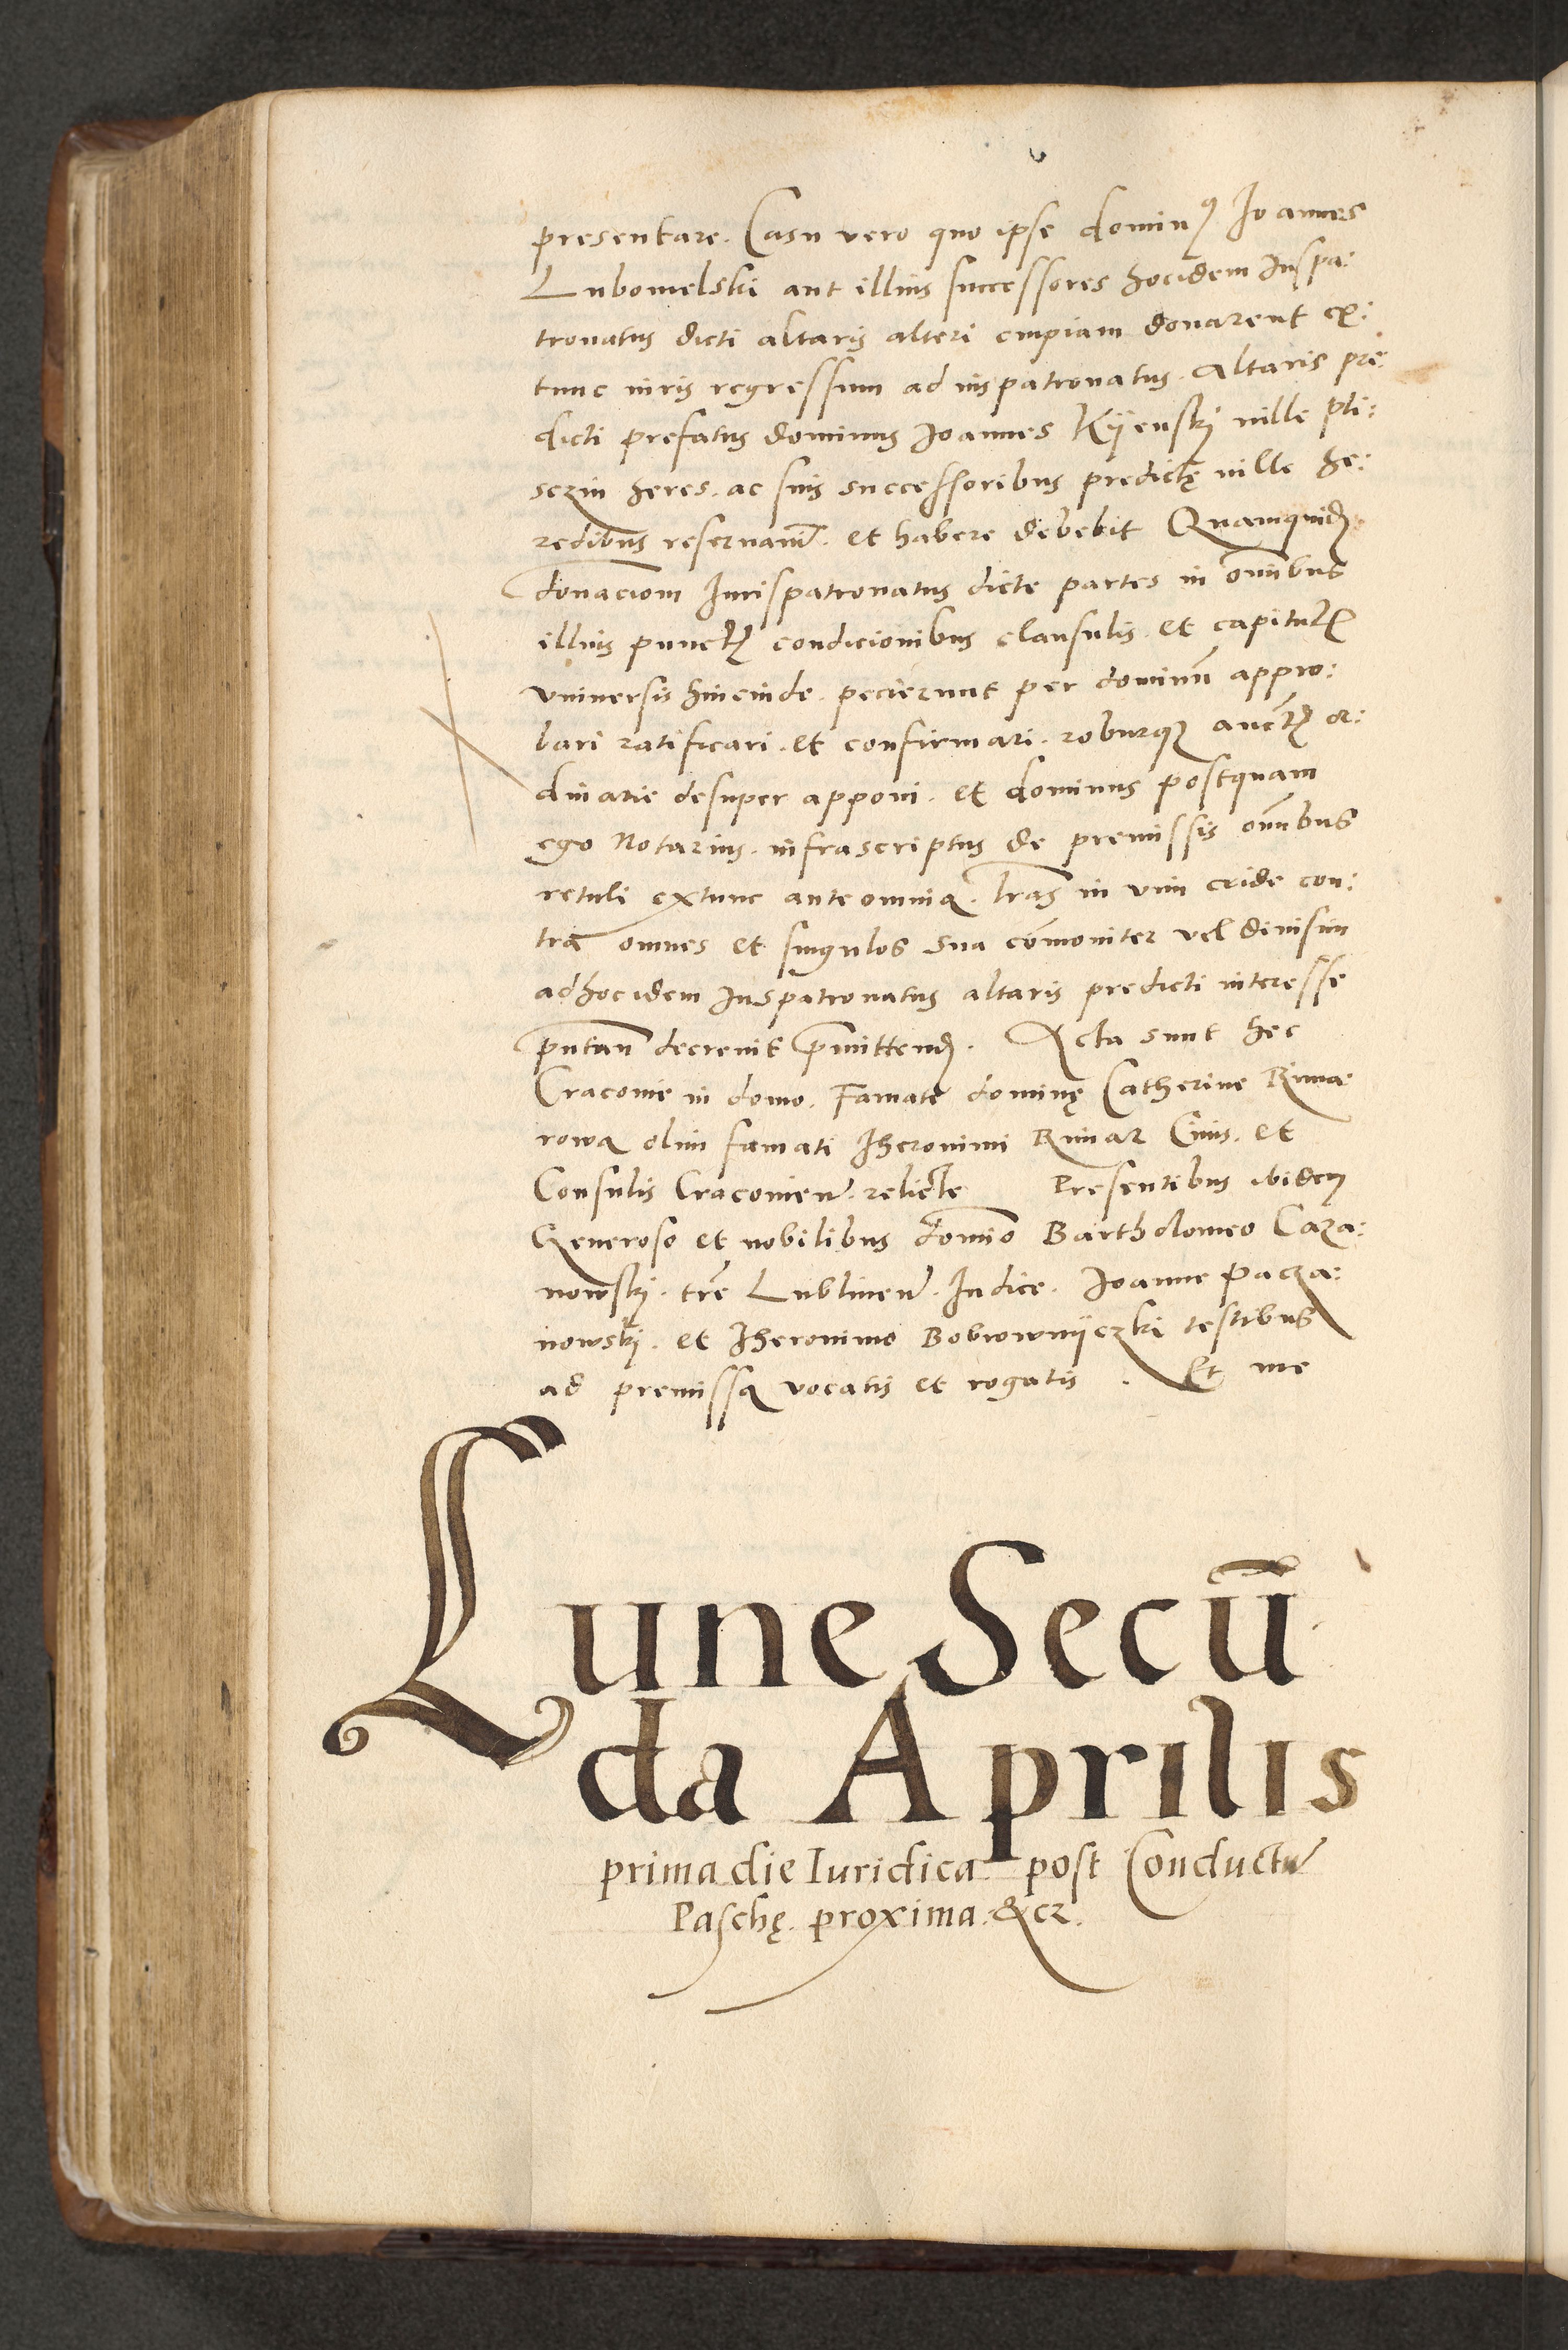 presentare. Casu vero quo ipse dominꝰ Joannes
Lubomelski aut illius successores hocidem Juspa:
tronatus dicti altaris alteri cuipiam donarent ex:
tunc iuris regressum ad iuspatronatus. Altaris pre:
dicti prefatus dominus Joannes Kijenskj uille pli:
sczin heres. ac suis successoribus predictę uille he:
redibus reseruauit. et habere debebit Quamquidē
donaciom Jurispatronatus dicte partes in om̄ibus
illius punctꝭ condicionibus clausulis. et capitulꝭ
vniuersis hincinde. pecierunt per dominū appro:
bari ratificari. et confirmari. roburqꝫ auctꝭ or:
dinarie desuper apponi. et dominus postquam
ego Notarius. infrascriptus de premissis om̄ibus
retuli extunc ante omnia. l̄ras in vim cride con:
tra omnes et singulos sua cōmoniter vel diuisim
adhocidem Juspatronatus altaris predicti interesse
putan̄ decreuit p̄mittend. Acta sunt hec
Cracouie in domo. Famate dominę Catherine Rima:
rowa olim famati Jheronimi Rimar Ciuis. et
Consulis Cracouien. relicte Presentibus ibidem
Generoso et nobilibus domīo Bartholomeo Caza:
nowskj. tr̄e Lublinen. Judice. Joanne Pacza:
nowskj. et Jheronimo Bobrownijczki testibus
ad premissa vocatis et rogatis. Et me
Lune Secū
da Aprilis
prima die Iuridica. post Conductū
Paschę. proxima. &cz.